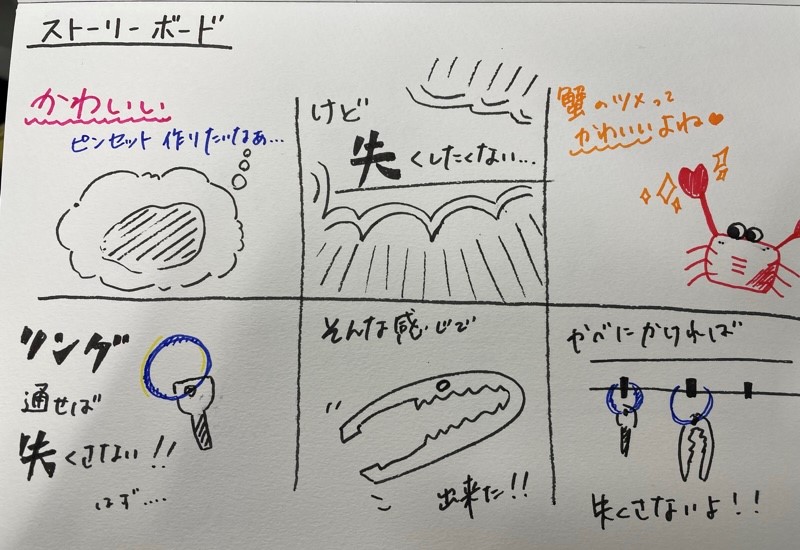 ストーリーボード
かわいい
ピンセット作りたいなぁ...
けど
失くしたくない...
蟹のツメって
かわいいよね
リング
通せば
失くさない!!
はず....
そんな感じで
出来た!!
かべにかければ
失くさないよ!!